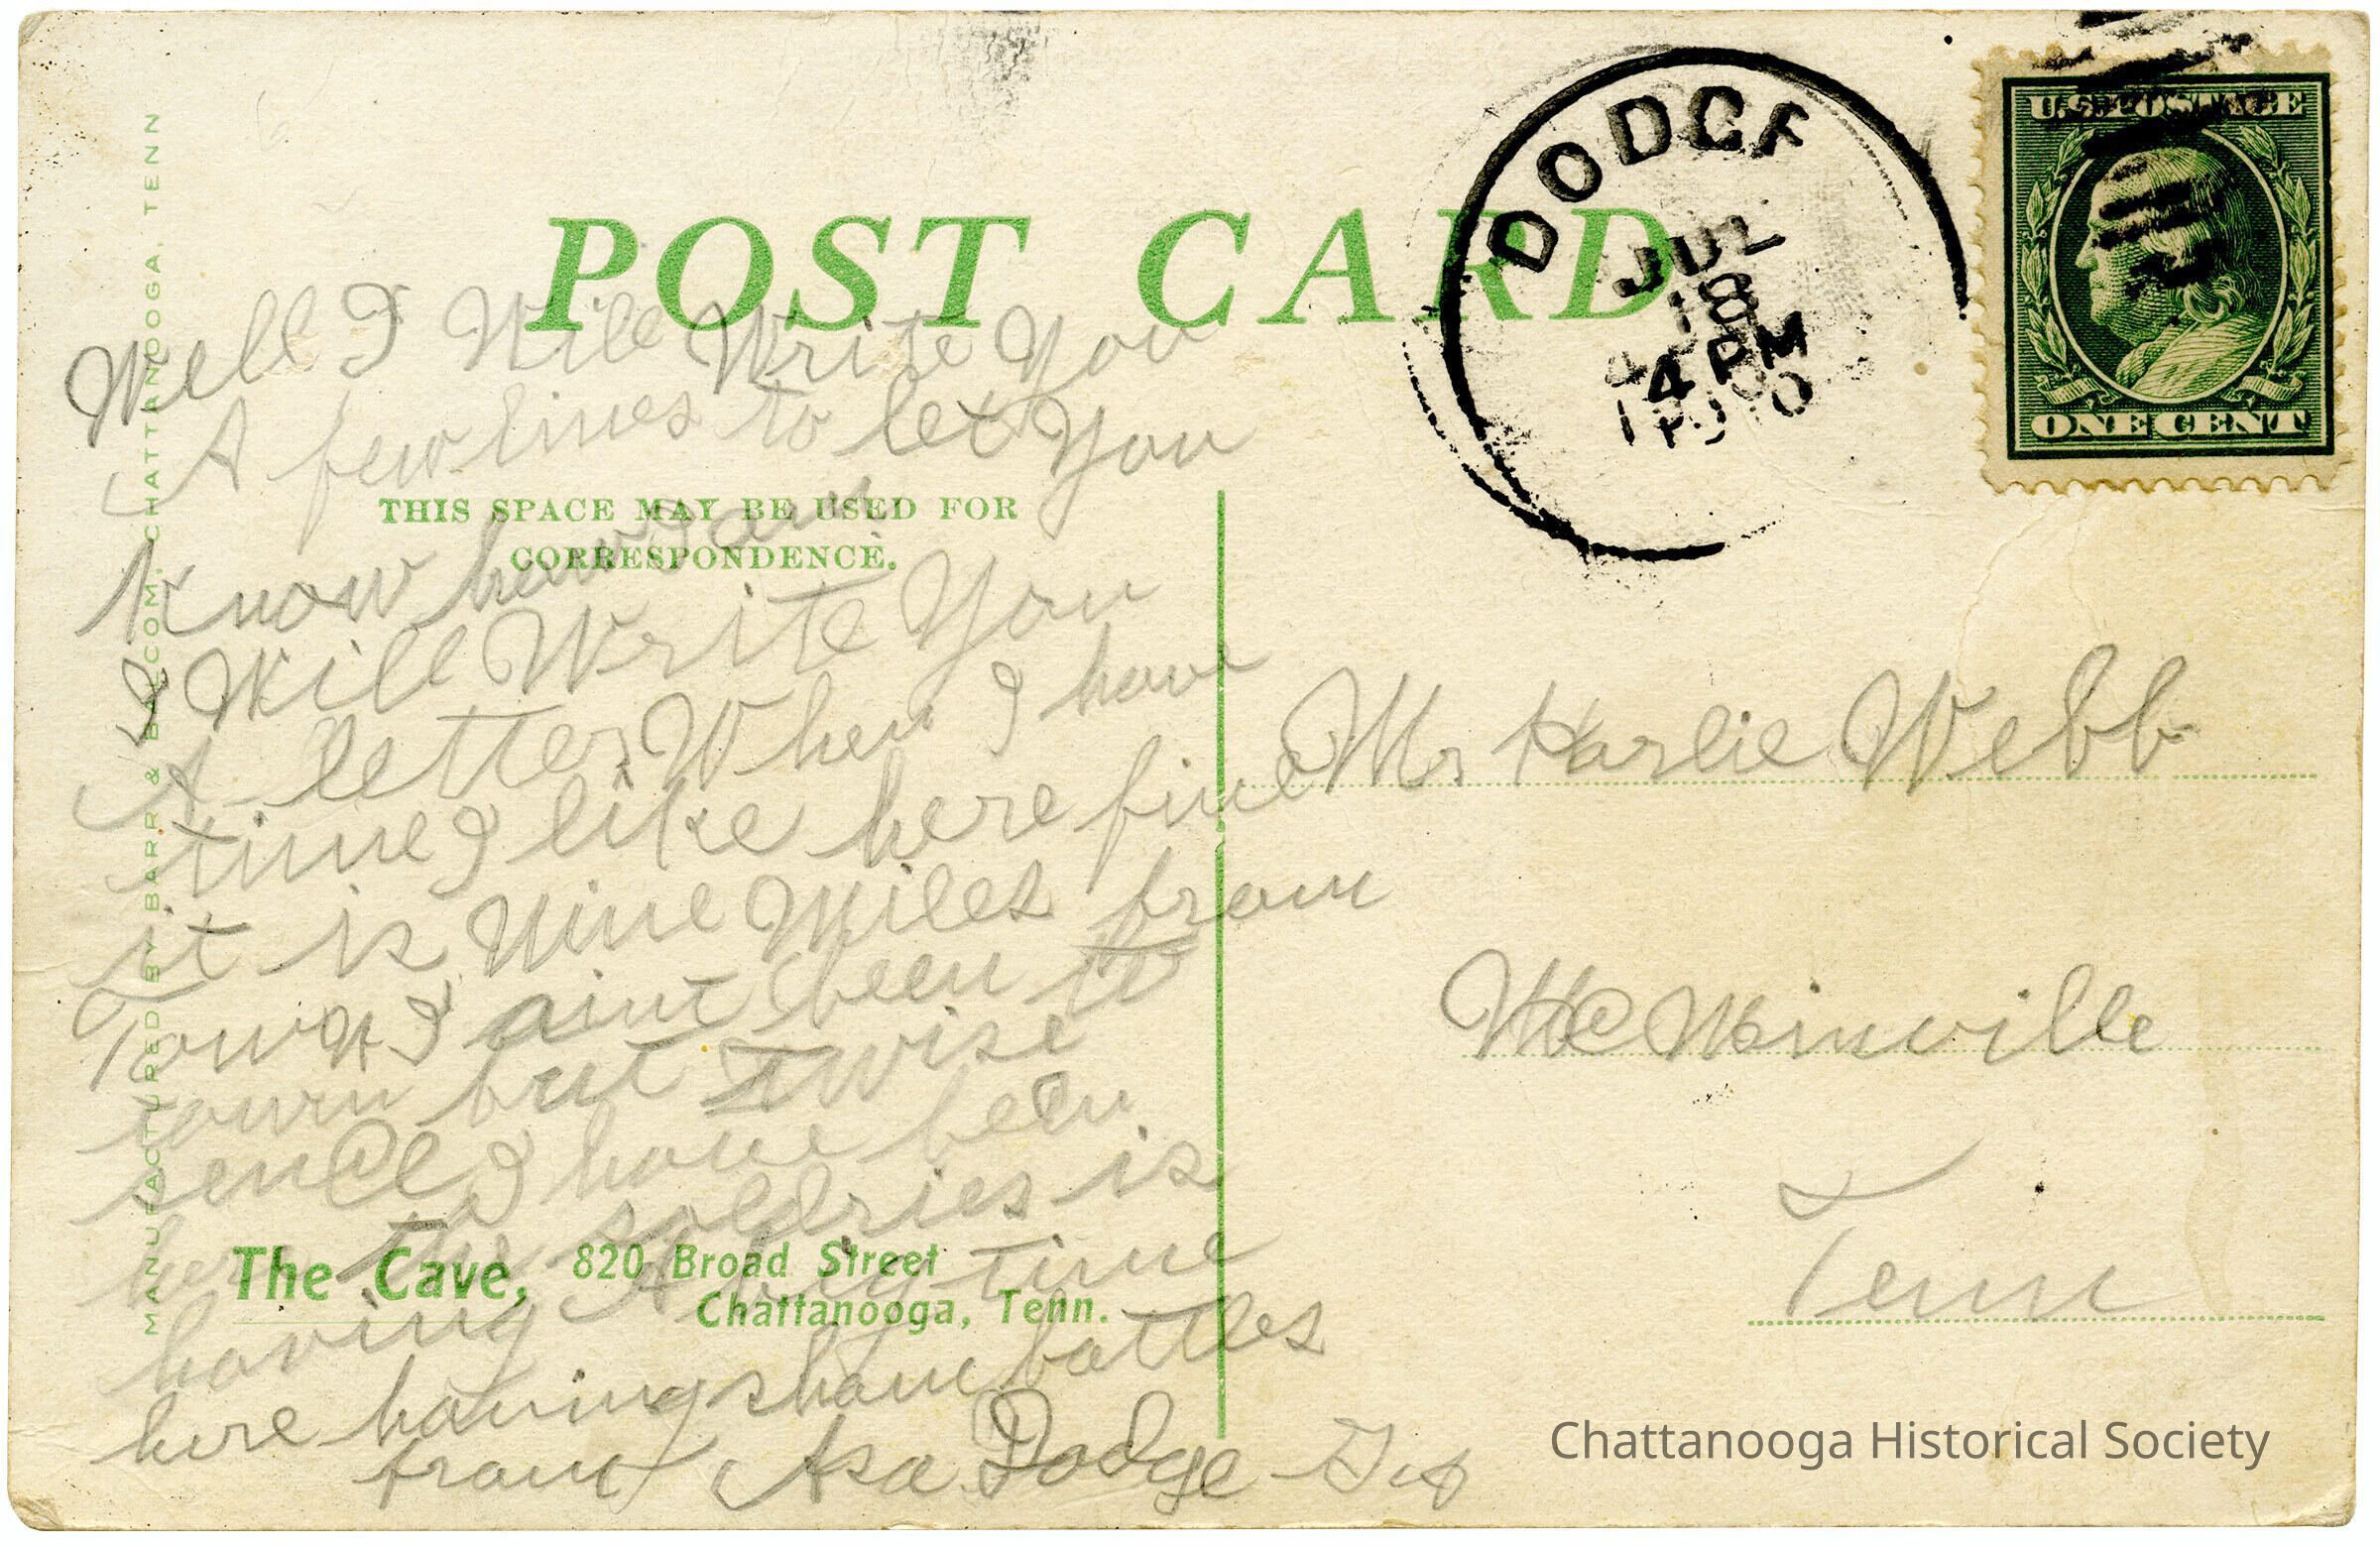 POST CARD
DODGE
JUL
18
4 PM
1910
U.S. POSTAGE
ONE CENT
THIS SPACE MAY BE USED FOR
CORRESPONDENCE.
MANUFACTURED BY BARR & BALCOM, CHATTANOOGA, TENN
Well I Will Write You
A few lines to let You
Know how I am
I Will Write You
A letter When I have
time I like here fine
it is Nine Miles from
Town I aint been to
town but Twise
sence I have been
here the soldries is
having A big time
here having sham battles
from Asa Dodge Ga
The Cave, 820 Broad Street
Chattanooga, Tenn.
Mr Harlie Webb
McMinville
Tenn
Chattanooga Historical Society